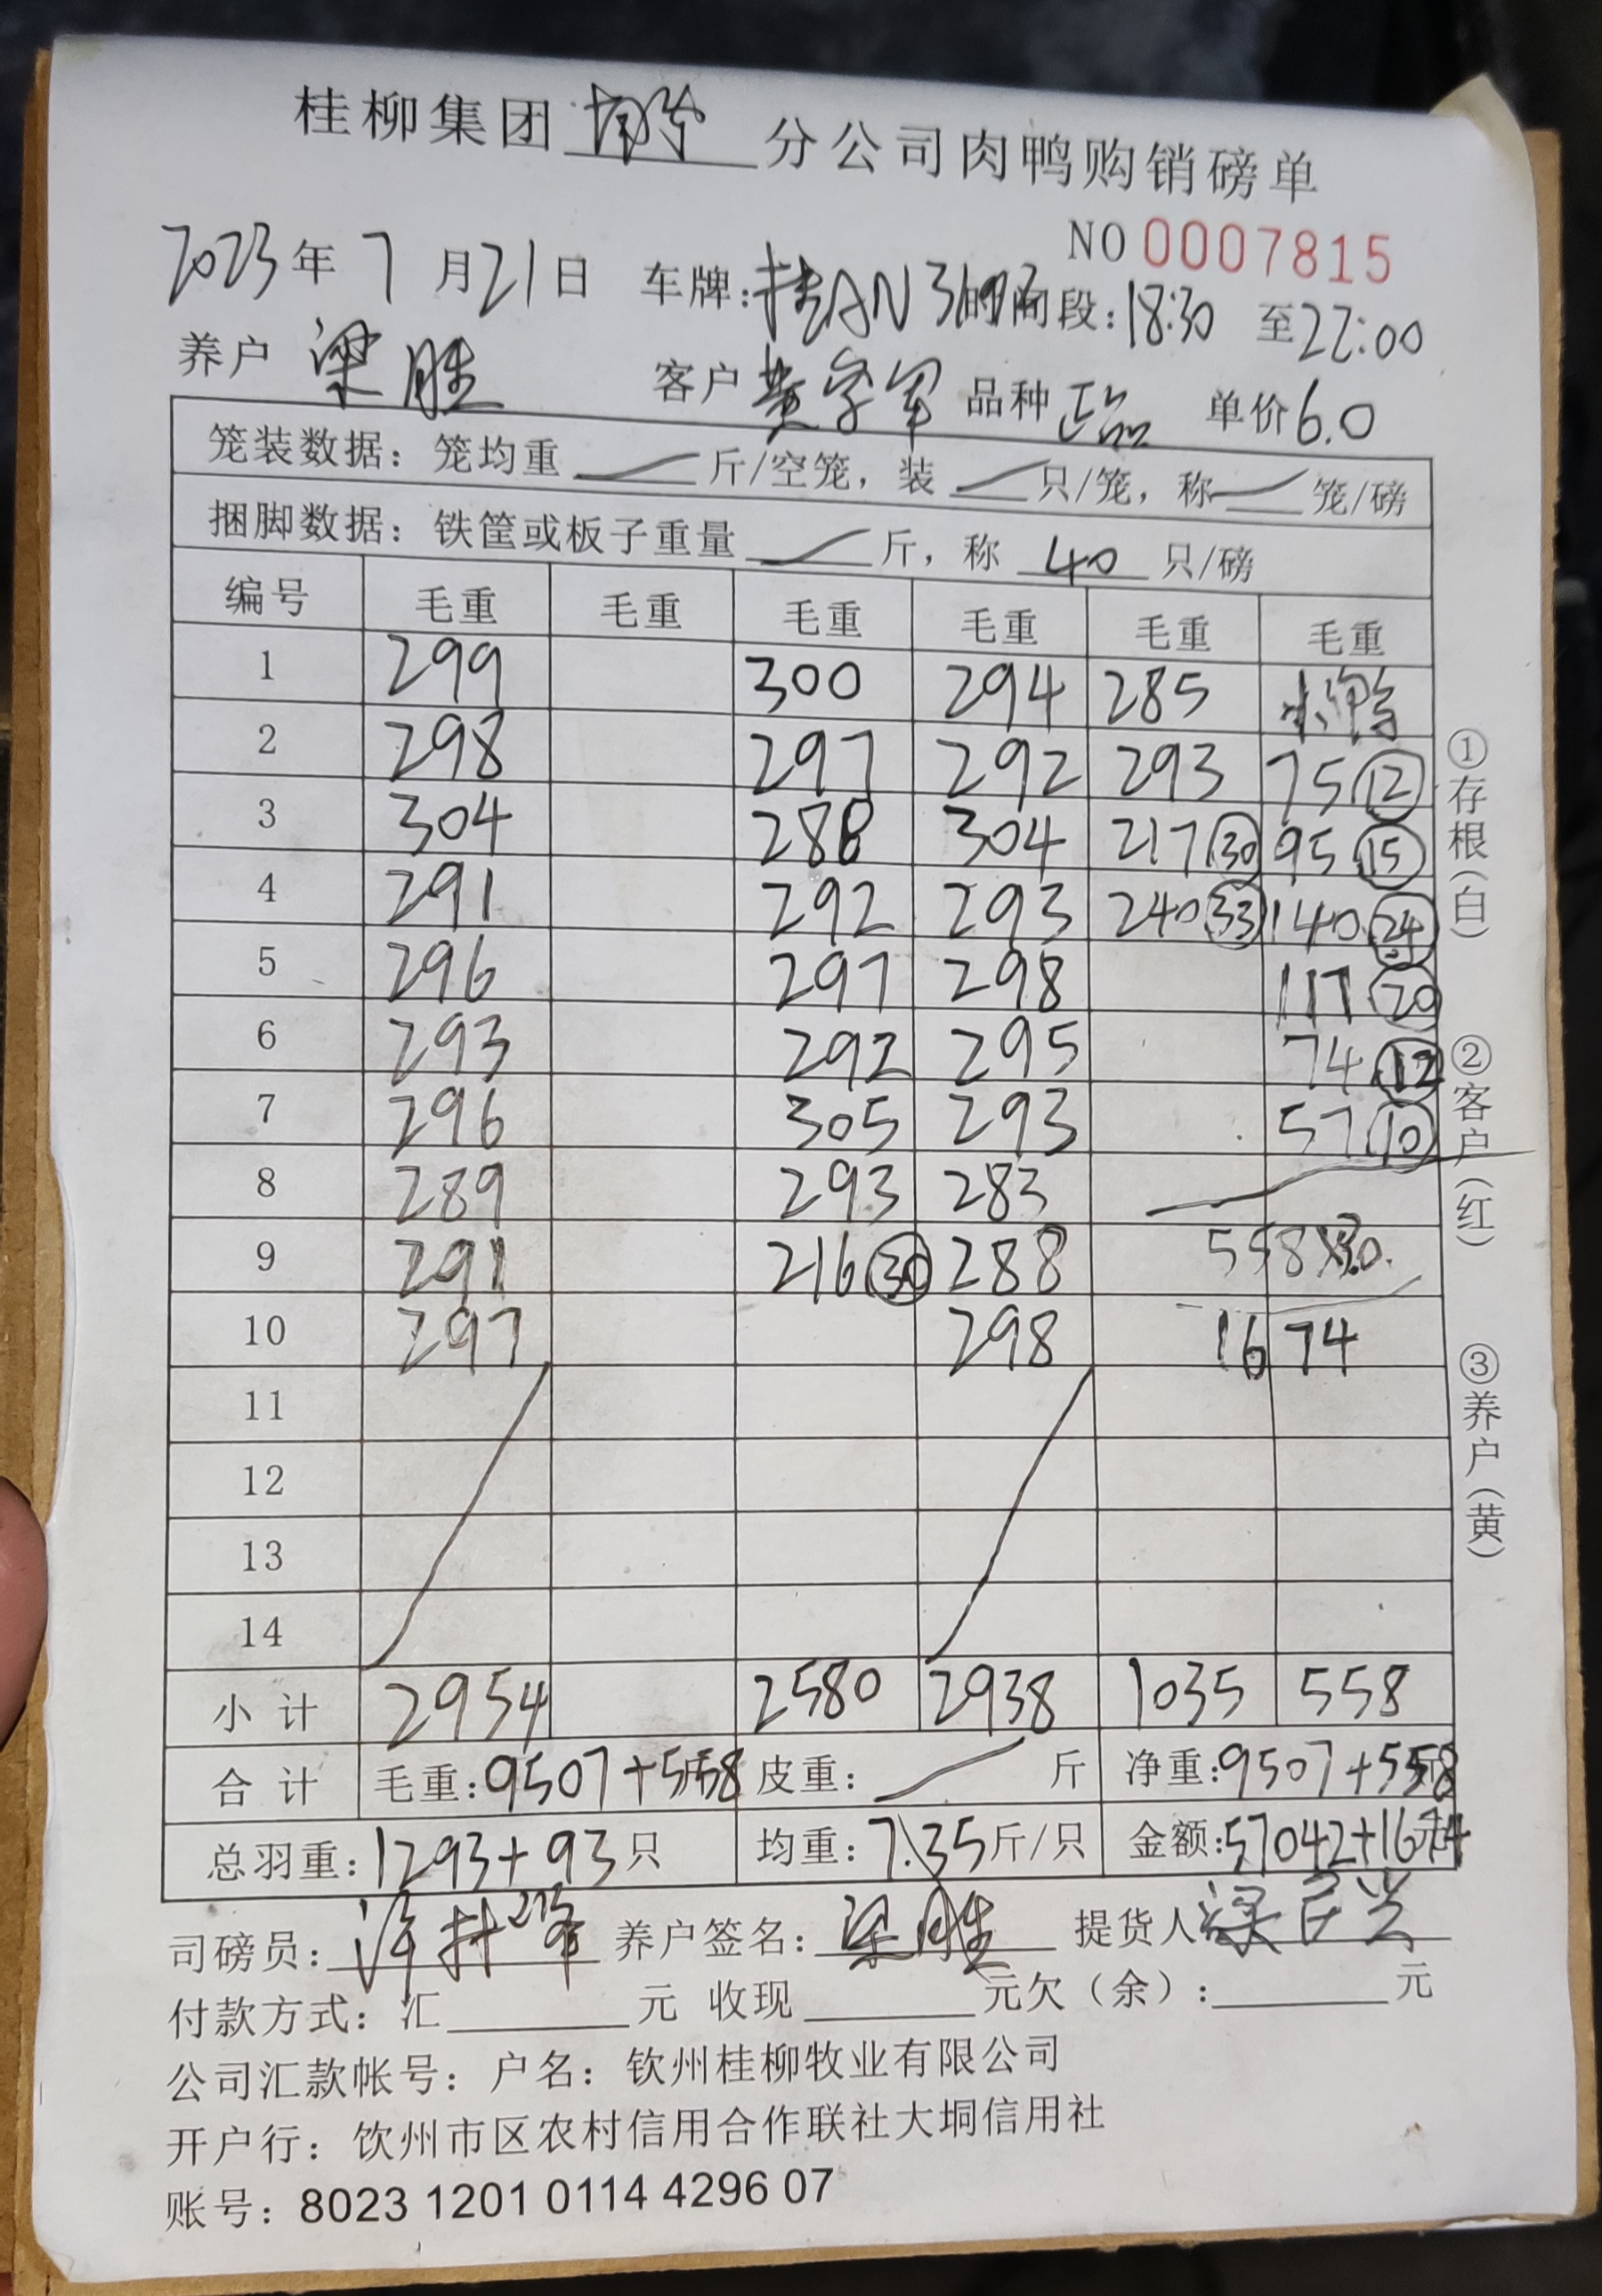 桂柳集团 分公司肉鸭购销磅单
NO 0007815
2023年7月21日 车牌:桂AN 时间段:18:30 至22:00
养户 梁胜 客户 黄字军 品种 单价6.0
笼装数据：笼均重 斤/空笼，装 只/笼，称 笼/磅
捆脚数据：铁筐或板子重量 斤，称 40 只/磅
编号 毛重 毛重 毛重 毛重 毛重 毛重
1 299 300 294 285 小鸭
2 298 297 292 293 75 ⑫
3 304 288 304 217 ㉚ 95 ⑮
4 291 292 293 240 ㉝ 140 ㉔
5 296 297 298 117 ⑳
6 293 292 295 74 ⑫
7 296 305 293 57 ⑩
8 289 293 283
9 291 216 ㉚ 288 558×3.0
10 297 298 1674
11
12
13
14
小计 2954 2580 2938 1035 558
合计 毛重:9507+558 皮重: 斤 净重:9507+558
总羽重:1293+93只 均重:7.35斤/只 金额:57042+1674
司磅员: 养户签名:梁胜 提货人
付款方式：汇 元 收现 元欠（余）: 元
公司汇款帐号：户名：钦州桂柳牧业有限公司
开户行：饮州市区农村信用合作联社大垌信用社
账号：8023 1201 0114 4296 07
①存根(白)
②客户(红)
③养户(黄)